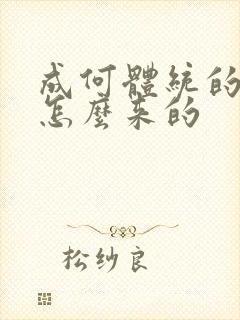 成何體統的
怎麼来的
松纱良